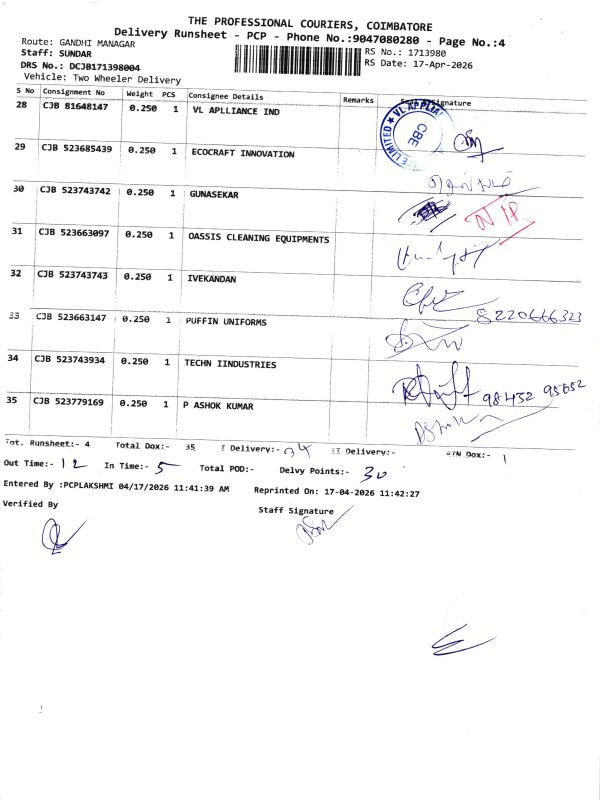 THE PROFESSIONAL COURIERS, COIMBATORE
Delivery Runsheet - PCP - Phone No.:9047080280 - Page No.:4
Route: GANDHI MANAGAR
Staff: SUNDAR
RS No.: 1713980
DRS No.: DCJB171398004
RS Date: 17-Apr-2026
Vehicle: Two Wheeler Delivery
S No Consignment No Weight PCS Consignee Details Remarks Signature
28 CJB 81648147 0.250 1 VL APLLIANCE IND
VL APPLIA CBE LIMITED
29 CJB 523685439 0.250 1 ECOCRAFT INNOVATION
30 CJB 523743742 0.250 1 GUNASEKAR
31 CJB 523663097 0.250 1 OASSIS CLEANING EQUIPMENTS
32 CJB 523743743 0.250 1 IVEKANDAN
8220666323
33 CJB 523663147 0.250 1 PUFFIN UNIFORMS
34 CJB 523743934 0.250 1 TECHN IINDUSTRIES
98432 95652
35 CJB 523779169 0.250 1 P ASHOK KUMAR
Tot. Runsheet:- 4 Total Dox:- 35 I Delivery:- 34 II Delivery:- RTN Dox:- 1
Out Time:- 12 In Time:- 5 Total POD:- Delvy Points:- 30
Entered By :PCPLAKSHMI 04/17/2026 11:41:39 AM Reprinted On: 17-04-2026 11:42:27
Verified By Staff Signature